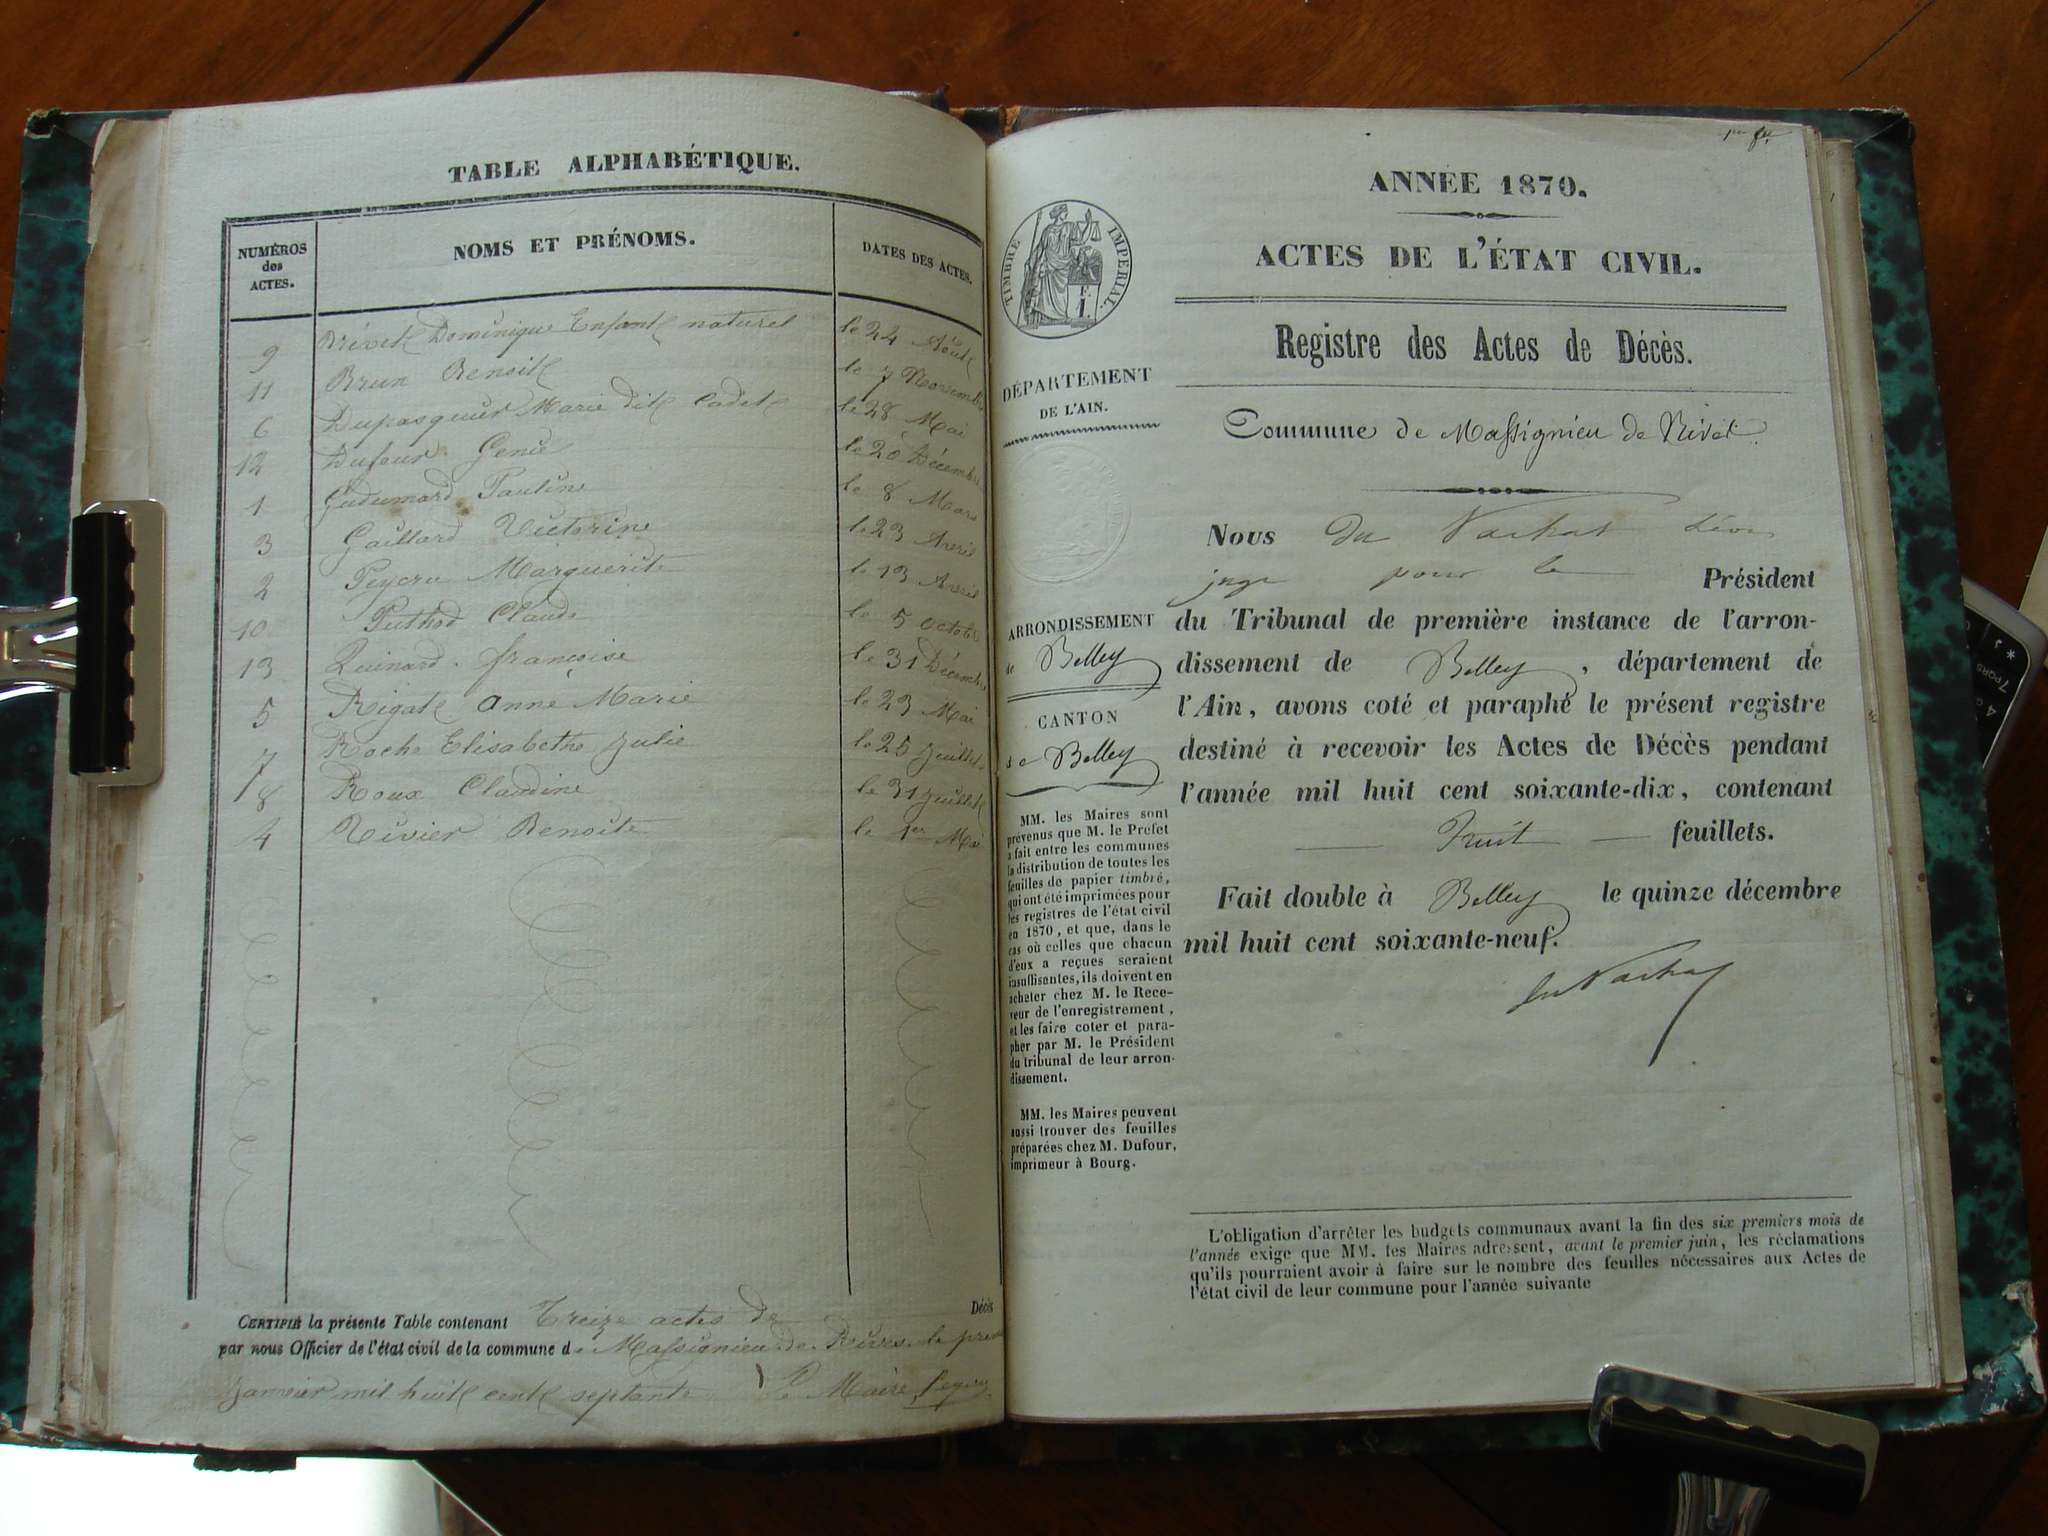 TABLE ALPHABÉTIQUE.
NUMÉROS des ACTES. NOMS ET PRÉNOMS. DATES DES ACTES.
9 Brévet Dominique Enfant naturel le 24 Août
11 Brun Benoit le 7 Novembre
6 Dupasquier Marie dit Cadet le 28 Mai
12 Dufour Genie le 20 Décembre
1 Pauline le 8 Mars
3 Gaillard Victorine le 23 Avril
2 Peycru Marguerite le 13 Avril
10 Puthod Claude le 5 octobre
13 Quinard francoise le 31 Décembre
5 Rigat anne Marie le 23 Mai
7 Roche Elisabethe Julie le 25 Juillet
8 Roux Claudine le 31 Juillet
4 Vivier Benoite le 1er Mai
CERTIFIÉ la présente Table contenant Treize actes de Décès
par nous Officier de l'état civil de la commune de Massignieu de Rives le
janvier mil huit cent septante Le Maire
1er f.
ANNÉE 1870.
ACTES DE L'ÉTAT CIVIL.
TIMBRE IMPÉRIAL.
Registre des Actes de Décès.
DÉPARTEMENT
DE L'AIN.
Commune de Massignieu de Rives
Nous Du Vachat Léon
juge pour le Président
du Tribunal de première instance de l'arron-
dissement de Belley, département de
l'Ain, avons coté et paraphé le présent registre
destiné à recevoir les Actes de Décès pendant
l'année mil huit cent soixante-dix, contenant
huit feuillets.
Fait double à Belley le quinze décembre
mil huit cent soixante-neuf.
du Vachat
ARRONDISSEMENT
de Belley
CANTON
de Belley
MM. les Maires sont
prévenus que M. le Préfet
a fait entre les communes
la distribution de toutes les
feuilles de papier timbré,
qui ont été imprimées pour
les registres de l'état civil
en 1870, et que, dans le
cas où celles que chacun
d'eux a reçues seraient
insuffisantes, ils doivent en
acheter chez M. le Rece-
veur de l'enregistrement,
et les faire coter et para-
pher par M. le Président
du tribunal de leur arron-
dissement.
MM. les Maires peuvent
aussi trouver des feuilles
préparées chez M. Dufour,
imprimeur à Bourg.
L'obligation d'arrêter les budgets communaux avant la fin des six premiers mois de
l'année exige que MM. les Maires adressent, avant le premier juin, les réclamations
qu'ils pourraient avoir à faire sur le nombre des feuilles nécessaires aux Actes de
l'état civil de leur commune pour l'année suivante